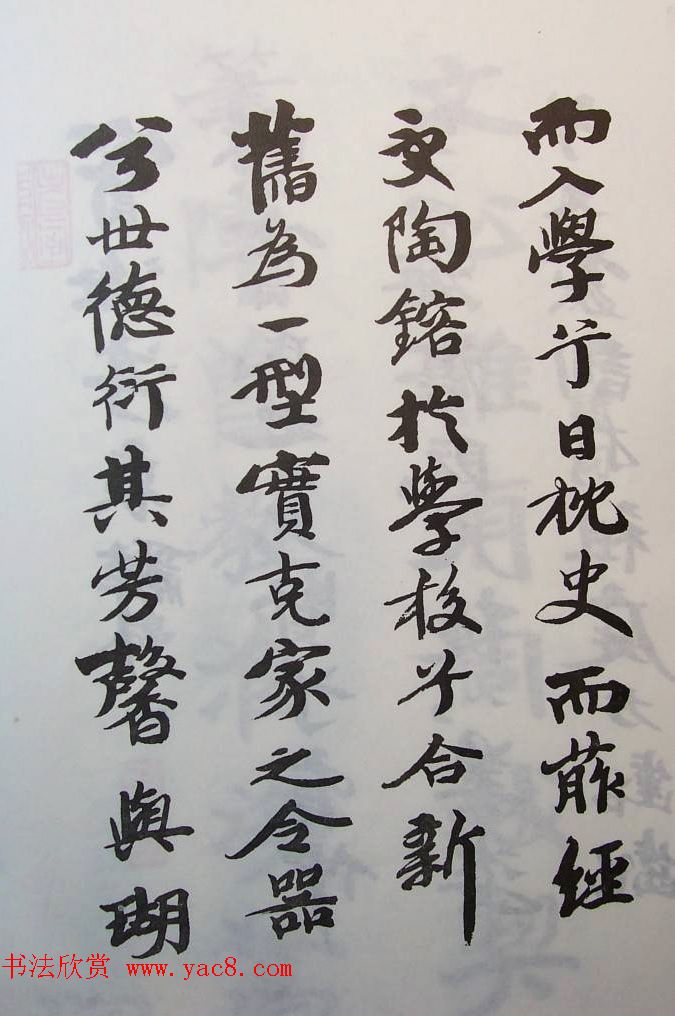 而入學兮日枕史而葄經
更陶鎔於學校兮合新
舊為一型實克家之令器
兮世德衍其芳馨與瑚
书法欣赏 www.yac8.com